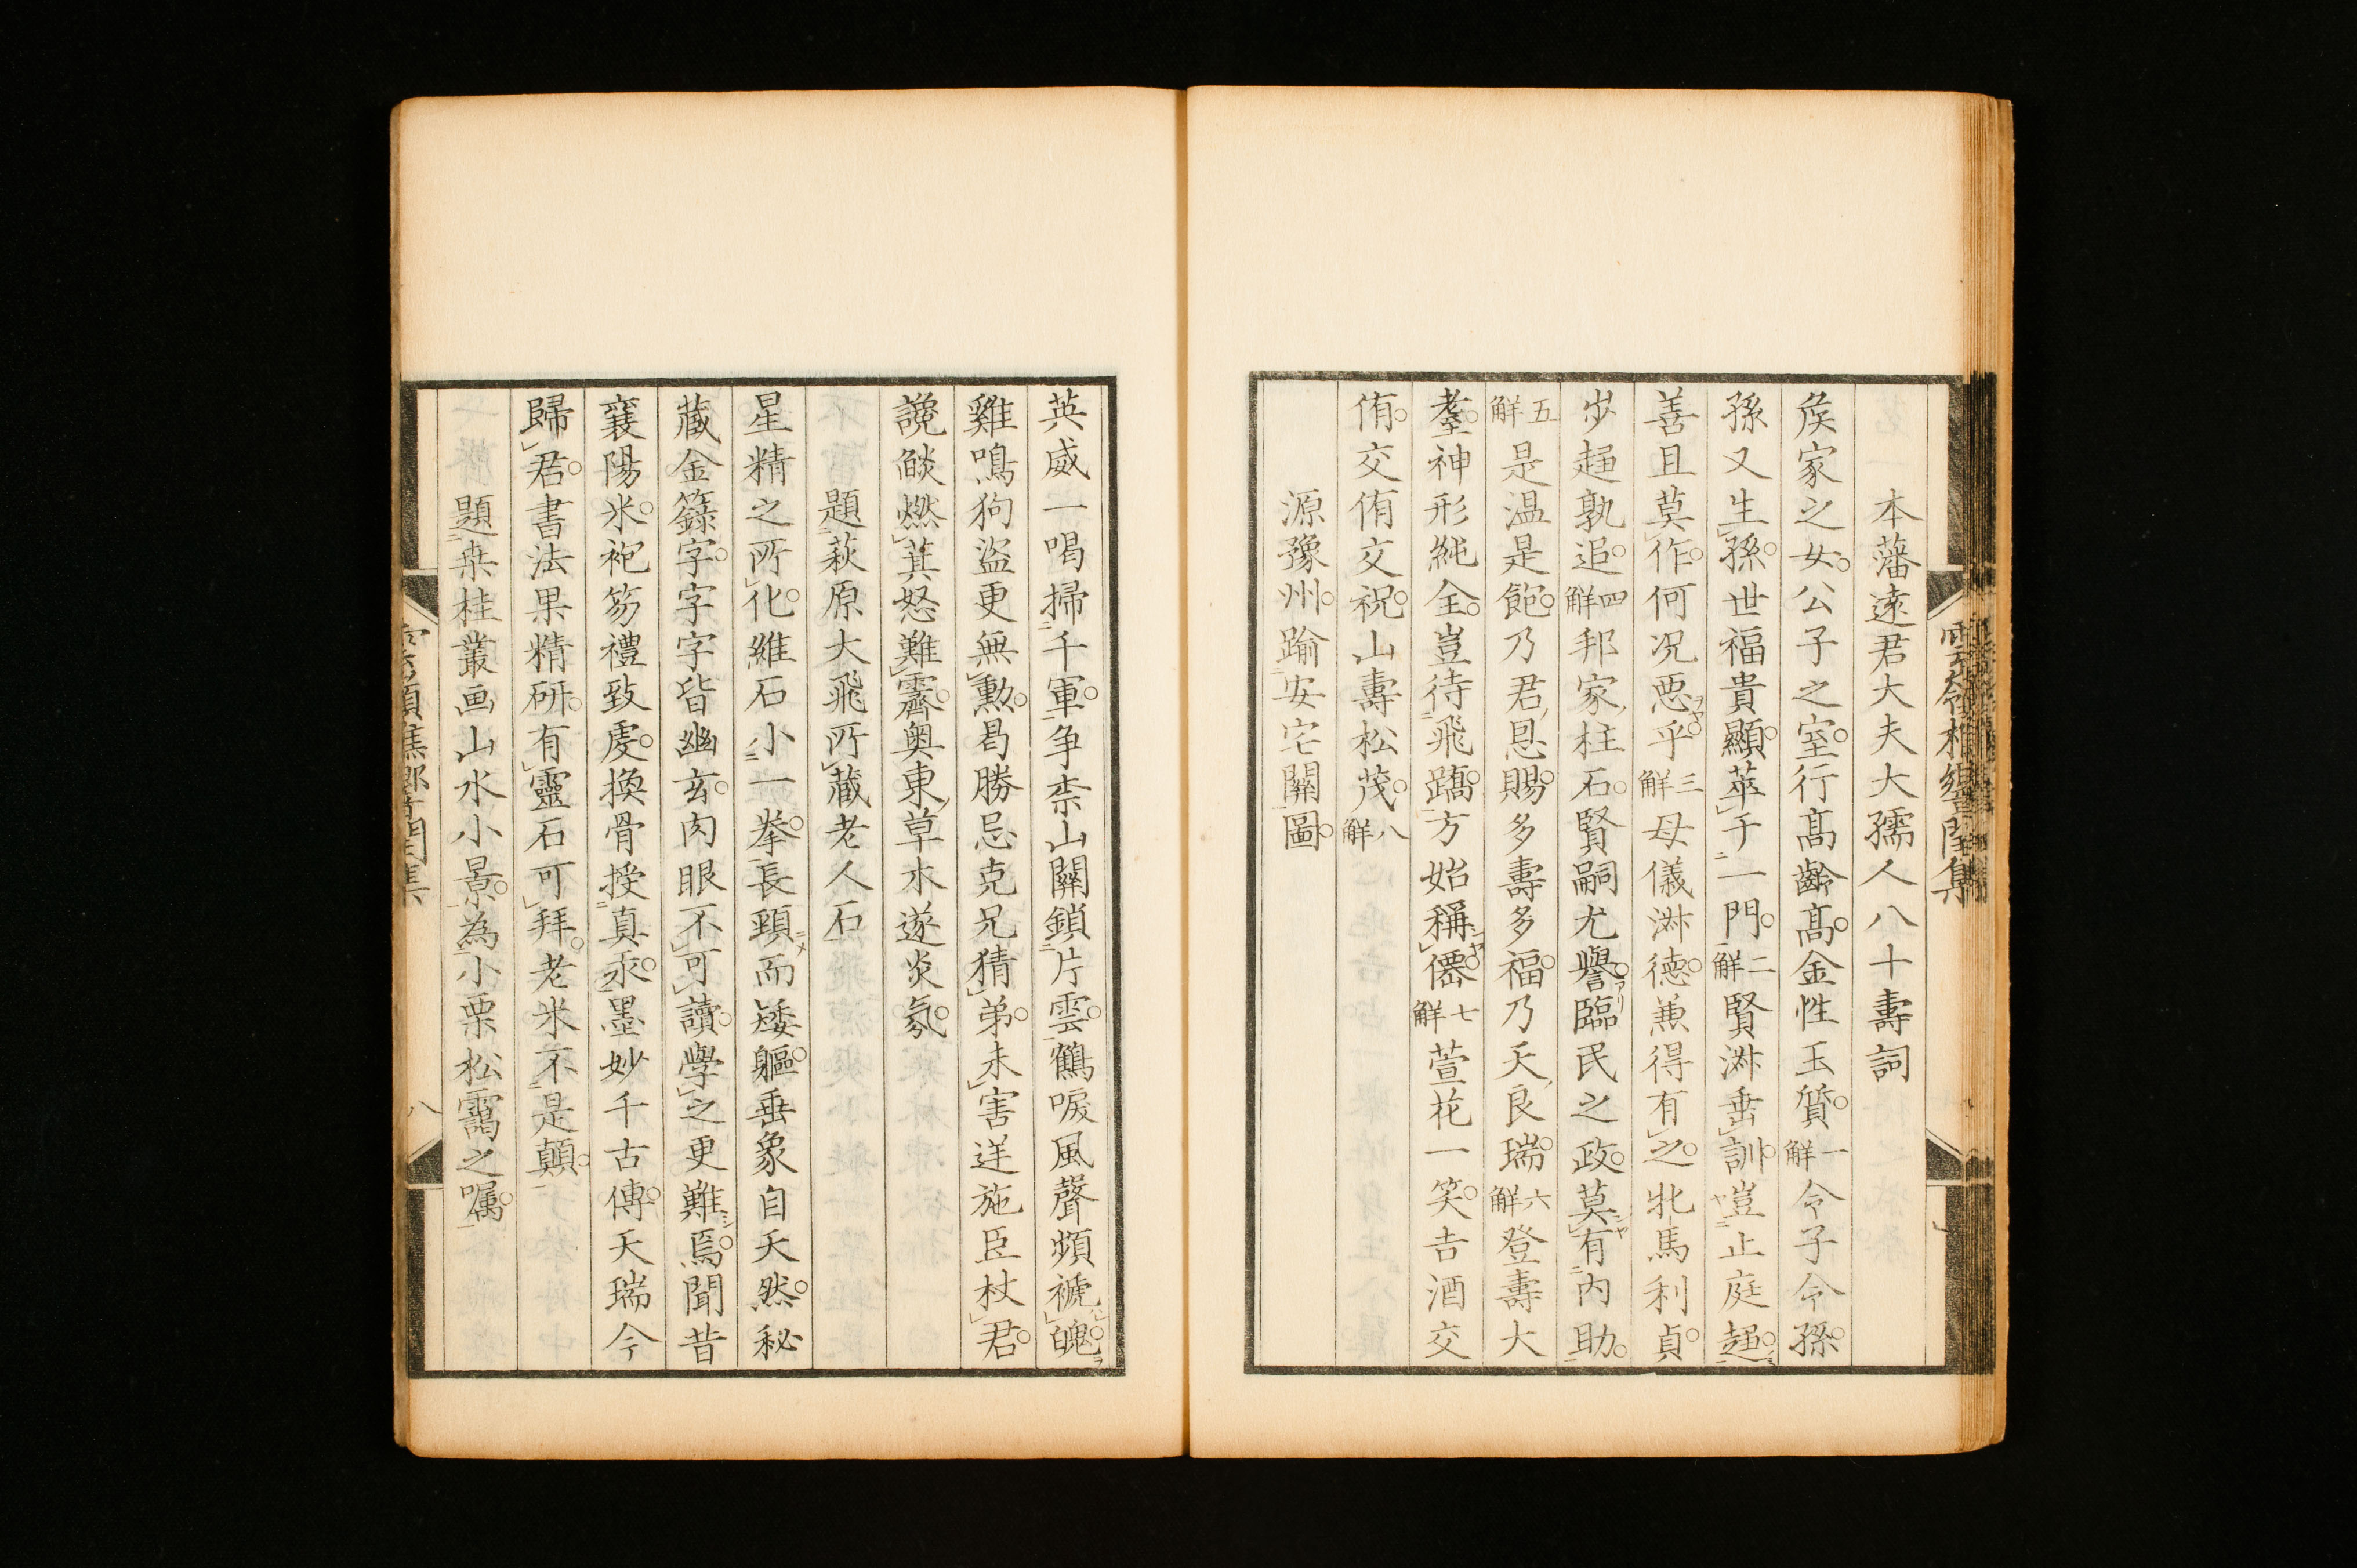 本藩遠君大夫大孺人八十壽詞
矦家之女公子之室行髙齡髙金性玉質一解令子令孫
孫又生孫世福貴顯萃于一門二解賢淋垂訓豈止庭趨
善且莫作何况惡乎三解母儀淋德兼得有之牝馬利貞
步趨孰追四解邦家柱石賢嗣尤譽臨民之政莫有内助
五解是温是飽乃君恩賜多壽多福乃天良瑞六解登壽大
耋神形純全豈待飛蹻方始稱僊七解萱花一笑吉酒交
侑交侑交祝山壽松茂八解
源豫州踰安宅關圖
英威一喝掃千軍争柰山關鎖片雲鶴唳風聲頻褫魄
雞鳴狗盜更無勲曷勝忌克兄猜弟未害逆施臣杖君
讒燄燃萁怒難霽奥東草木遂炎氛
題萩原大飛所藏老人石
星精之所化維石小一拳長頸而矮軀垂象自天然秘
藏金籙字字字皆幽玄肉眼不可讀學之更難焉聞昔
襄陽米袍笏禮致虔換骨授真汞墨妙千古傳天瑞今
歸君書法果精研有靈石可拜老米不是顛
題桒桂叢画山水小景為小栗松靄之嘱
八